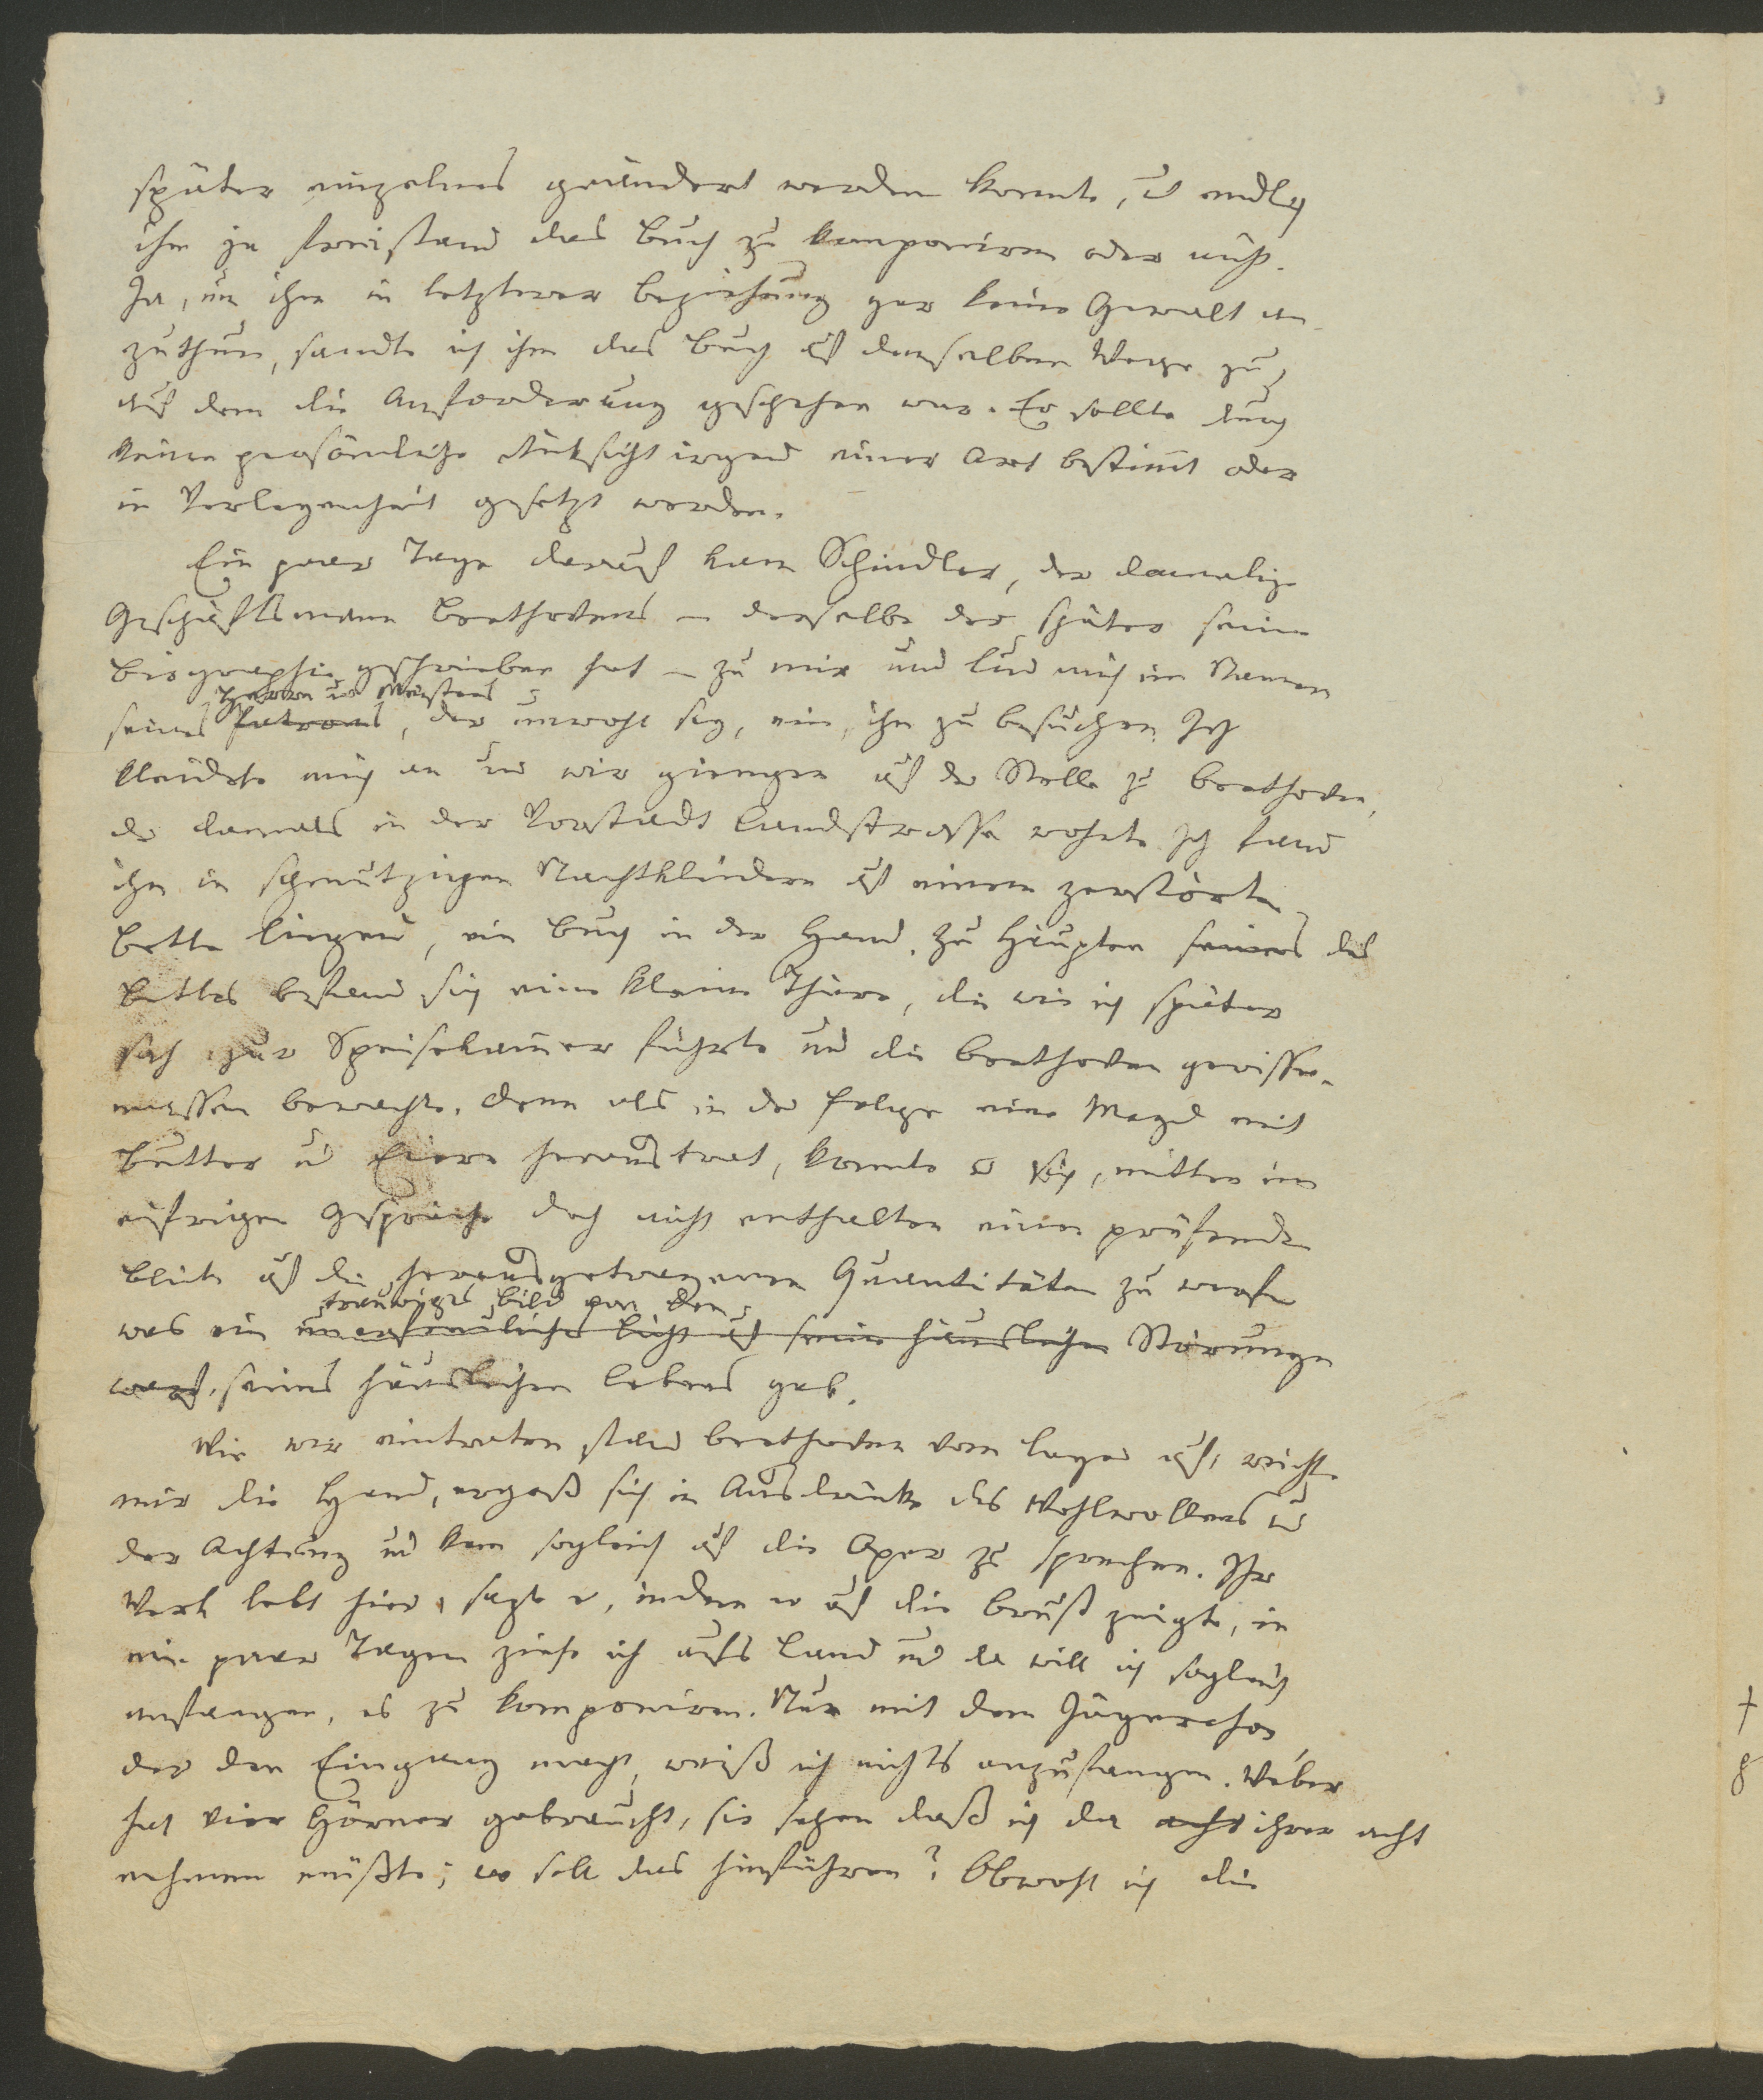 später einzelnes geändert werden konnte, u endlich
ihm ja freistand das Buch zu komponiren oder nicht.
Ja, um ihm in letzterer Beziehung gar keine Gewalt an
zuthun, sandte ich ihm das Buch auf demselben Wege zu,
auf dem die Anforderung geschehen war. Er sollte durch
keine persönliche Rüksicht irgend einer Art bestimt oder
in Verlegenheit gesetzt werden.
Ein paar Tage darauf kam Schindler, der damalige
Geschäftsmann Beethovens – derselbe der später seine
Biographie geschrieben hat – zu mir und lud mich im Namen
Herrn und Meisters
seines Patrons, der unwohl sey, ein, ihn zu besuchen. Ich
kleidete mich an und wir giengen auf der Stelle zu Beethoven,
der damals in der Vorstadt Landstrasse wohnte. Ich fand
ihn in schmutzigen Nachtkleidern auf einem zerstörten
Bette liegend, ein Buch in der Hand. Zu Häupten seines des
Bettes befand sich eine kleine Thüre, die wie ich später
sah zur Speisekamer führte und die Beethoven gewisser-
massen bewachte. Denn als in der Folge eine Magd mit
Butter u Eiern heraustrat, konnte er sich, mitten im
eifrigen Gespräche doch nicht enthalten einen prüfenden
Blick auf die herausgetragenen Quantitäten zu werfen
trauriges Bild von den
was ein unerfreuliches Licht auf seine häuslichen Störungen
warf. seines häuslichen Lebens gab.
Wie wir eintraten stand Beethoven vom Lager auf, reichte
mir die Hand, ergoß sich in Ausdrücke des Wohlwollens und
der Achtung und kam sogleich auf die Oper zu sprechen. Ihr
Werk lebt hier, sagte er, indem er auf die Brust zeigte, in
ein paar Tagen ziehe ich aufs Land und da will ich sogleich
anfangen, es zu komponiren. Nur mit dem Jägerchor,
der den Eingang macht, weiß ich nichts anzufangen. Weber
hat vier Hörner gebraucht, sie sehen daß ich da acht ihrer acht
nehmen müßte; wo soll das hinführen? Obwohl ich die